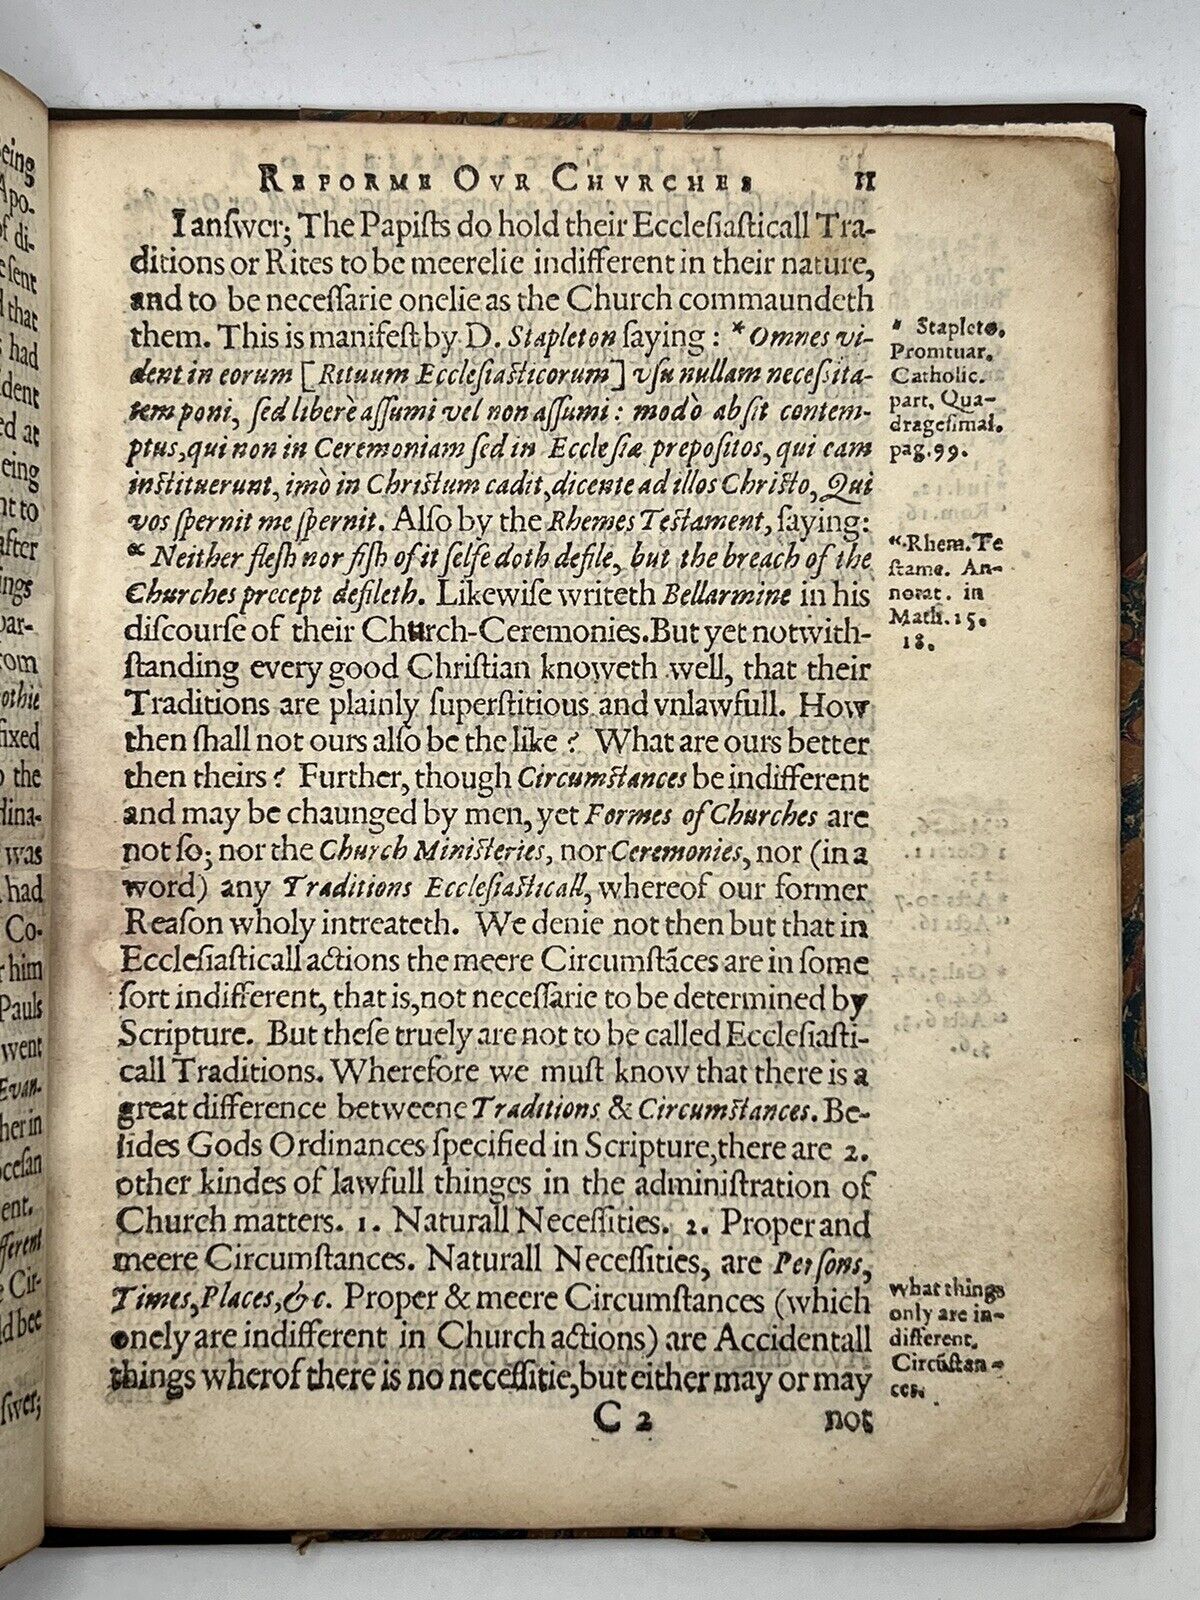 REFORME OVR CHVRCHES 11
I anſwer; The Papiſts do hold their Eccleſiaſticall Tra-
ditions or Rites to be meerelie indifferent in their nature,
and to be neceſſarie onelie as the Church commaundeth
them. This is manifeſt by D. Stapleton ſaying : * Omnes vi-
dent in eorum [Rituum Eccleſiaſticorum] vſu nullam neceſſita-
tem poni, ſed liberè aſſumi vel non aſſumi : modò abſit contem-
ptus, qui non in Ceremoniam ſed in Eccleſiæ prepoſitos, qui eam
inſtituerunt, imò in Chriſtum cadit, dicente ad illos Chriſto, Qui
vos ſpernit me ſpernit. Alſo by the Rhemes Teſtament, ſaying:
“ Neither fleſh nor fiſh of it ſelfe doth defile, but the breach of the
Churches precept defileth. Likewiſe writeth Bellarmine in his
diſcourſe of their Church-Ceremonies. But yet notwith-
ſtanding every good Chriſtian knoweth well, that their
Traditions are plainly ſuperſtitious and vnlawfull. How
then ſhall not ours alſo be the like ? What are ours better
then theirs ? Further, though Circumſtances be indifferent
and may be chaunged by men, yet Formes of Churches are
not ſo; nor the Church Miniſteries, nor Ceremonies, nor (in a
word) any Traditions Eccleſiaſticall, whereof our former
Reaſon wholy intreateth. We denie not then but that in
Eccleſiaſticall actions the meere Circumſtāces are in ſome
ſort indifferent, that is, not neceſſarie to be determined by
Scripture. But theſe truely are not to be called Eccleſiaſti-
call Traditions. Wherefore we muſt know that there is a
great difference betweene Traditions & Circumſtances. Be-
ſides Gods Ordinances ſpecified in Scripture, there are 2.
other kindes of lawfull thinges in the adminiſtration of
Church matters. 1. Naturall Neceſſities. 2. Proper and
meere Circumſtances. Naturall Neceſſities, are Perſons,
Times, Places, &c. Proper & meere Circumſtances (which
onely are indifferent in Church actions) are Accidentall
things wherof there is no neceſſitie, but either may or may
C 2 not
* Stapleto.
Promtuar.
Catholic.
part. Qua-
drageſimal.
pag. 99.
“ Rhem. Te
ſtame. An-
notat. in
Math. 15.
18.
what things
only are in-
different.
Circūſtan-
ces.
eing
Apo-
of di-
eſent
that
had
dent
ed at
eing
nt to
after
ings
par-
rom
othie
fixed
the
dina-
was
had
Co-
him
Pauls
went
Evan-
her in
oceſan
ent.
fferent
Cir-
ld bee
ſwer;